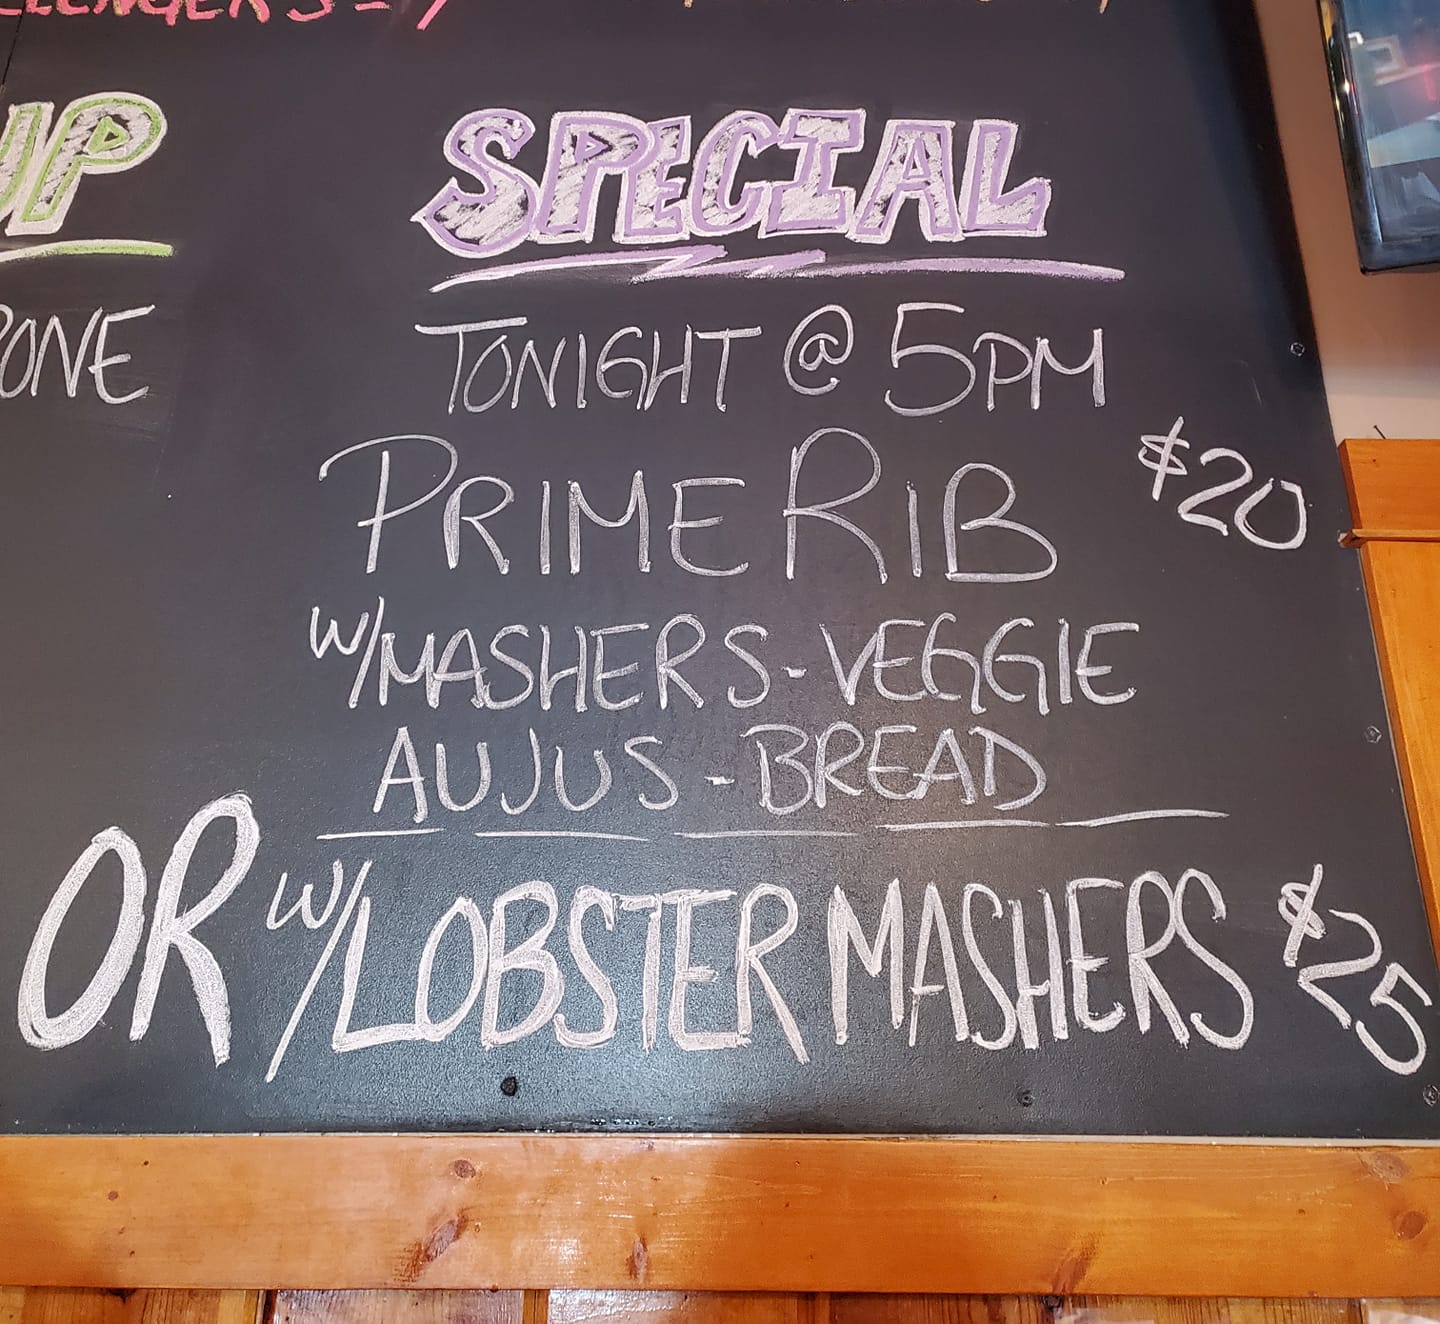 SPECIAL
TONIGHT @ 5PM
PRIME RIB $20
W/MASHERS - VEGGIE
AUJUS - BREAD
OR W/LOBSTER MASHERS $25